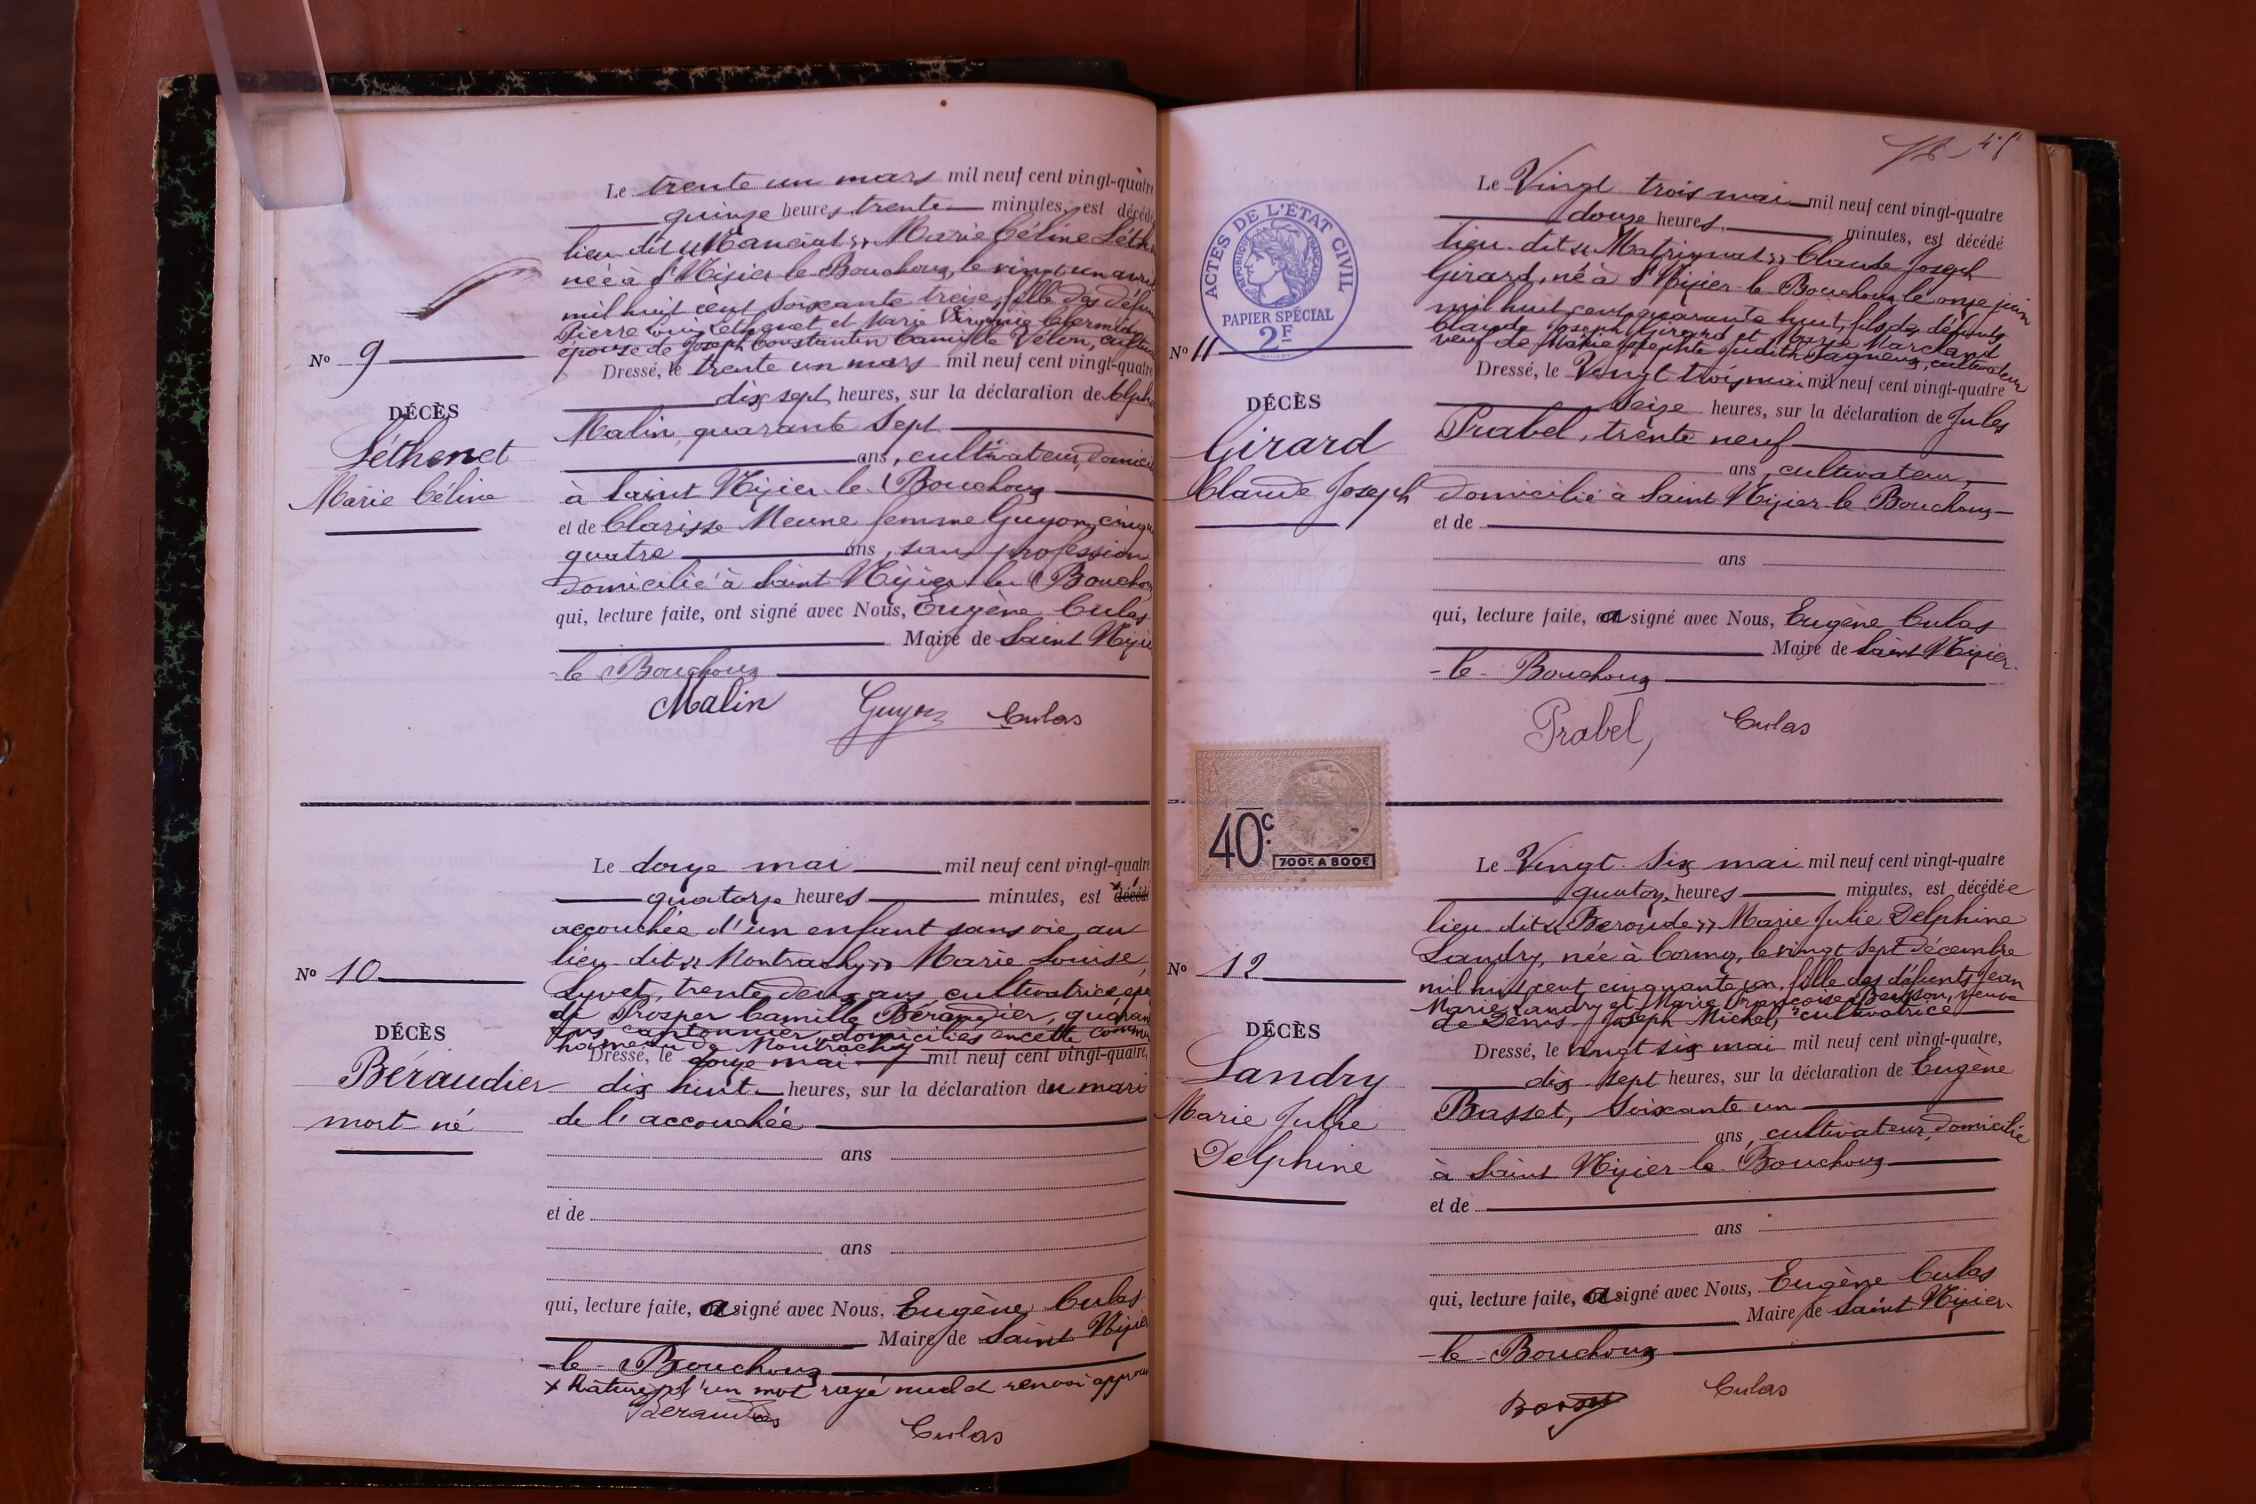 Le trente un mars mil neuf cent vingt-quatre
quinze heures trente minutes, est décédé
lieu dit « » Marie Céline
née à St Nizier le Bouchoux, le vingt un avril
mil huit cent soixante treize, fille des défunts
Pierre et Marie
épouse de Joseph Constantin Camille Velon,
No 9
Dressé, le trente un mars mil neuf cent vingt-quatre
dix sept heures, sur la déclaration de
DÉCÈS
Malin, quarante sept
Léthenet
ans, cultivateur,
Marie Céline
à Saint Nizier le Bouchoux
et de Clarisse femme Guyon,
quatre ans, sans profession
domicilié à Saint Nizier le Bouchoux
qui, lecture faite, ont signé avec Nous, Eugène Culas
Maire de Saint Nizier
-le Bouchoux
Malin Guyon Culas
Le douze mai mil neuf cent vingt-quatre
quatorze heures minutes, est décédé
accouchée d'un enfant sans vie, au
lieu dit « Montrachy » Marie Louise
No 10
Syvet, trente deux ans, cultivatrice,
de Prosper Camille
ans cantonnier domiciliés en cette
hameau de Montrachy
DÉCÈS
Dressé, le douze mai mil neuf cent vingt-quatre,
Béraudier
dix huit heures, sur la déclaration du mari
mort né
de l'accouchée
ans
et de
ans
qui, lecture faite, a signé avec Nous, Eugène Culas
Maire de Saint Nizier
-le-Bouchoux
d'un mot rayé nul et renvoi
Culas
ACTES DE L'ÉTAT CIVIL
RÉPUBLIQUE FRANÇAISE
PAPIER SPÉCIAL
2F
Le Vingt trois mai mil neuf cent vingt-quatre
douze heures minutes, est décédé
lieu-dit « » Claude Joseph
Girard, né à St Nizier le Bouchoux le onze juin
mil huit cent quarante huit, fils des défunts
Claude Joseph Girard et Marie Marchand
veuf de Marie Josephte Judith, cultivateur
No 11
Dressé, le Vingt trois mai mil neuf cent vingt-quatre
DÉCÈS
seize heures, sur la déclaration de Jules
Girard
Prabel, trente neuf
ans, cultivateur,
Claude Joseph
domicilié à Saint Nizier le Bouchoux
et de
ans
qui, lecture faite, a signé avec Nous, Eugène Culas
Maire de Saint Nizier-
-le-Bouchoux
Prabel, Culas
40c.
700F A 800F
Le Vingt-six mai mil neuf cent vingt-quatre
heures minutes, est décédée
lieu dit « Beroude » Marie Julie Delphine
Landry, née à Cormoz, le vingt sept décembre
No 12
mil huit cent cinquante un, fille des défunts Jean
Marie Landry et Marie Françoise, veuve
de Denis Joseph Michel, cultivatrice
DÉCÈS
Dressé, le vingt six mai mil neuf cent vingt-quatre,
Landry
dix-sept heures, sur la déclaration de Eugène
Marie Julie
Basset, soixante un
ans, cultivateur, domicilié
Delphine
à Saint Nizier le Bouchoux
et de
ans
qui, lecture faite, a signé avec Nous, Eugène Culas
Maire de Saint Nizier-
-le-Bouchoux
Culas